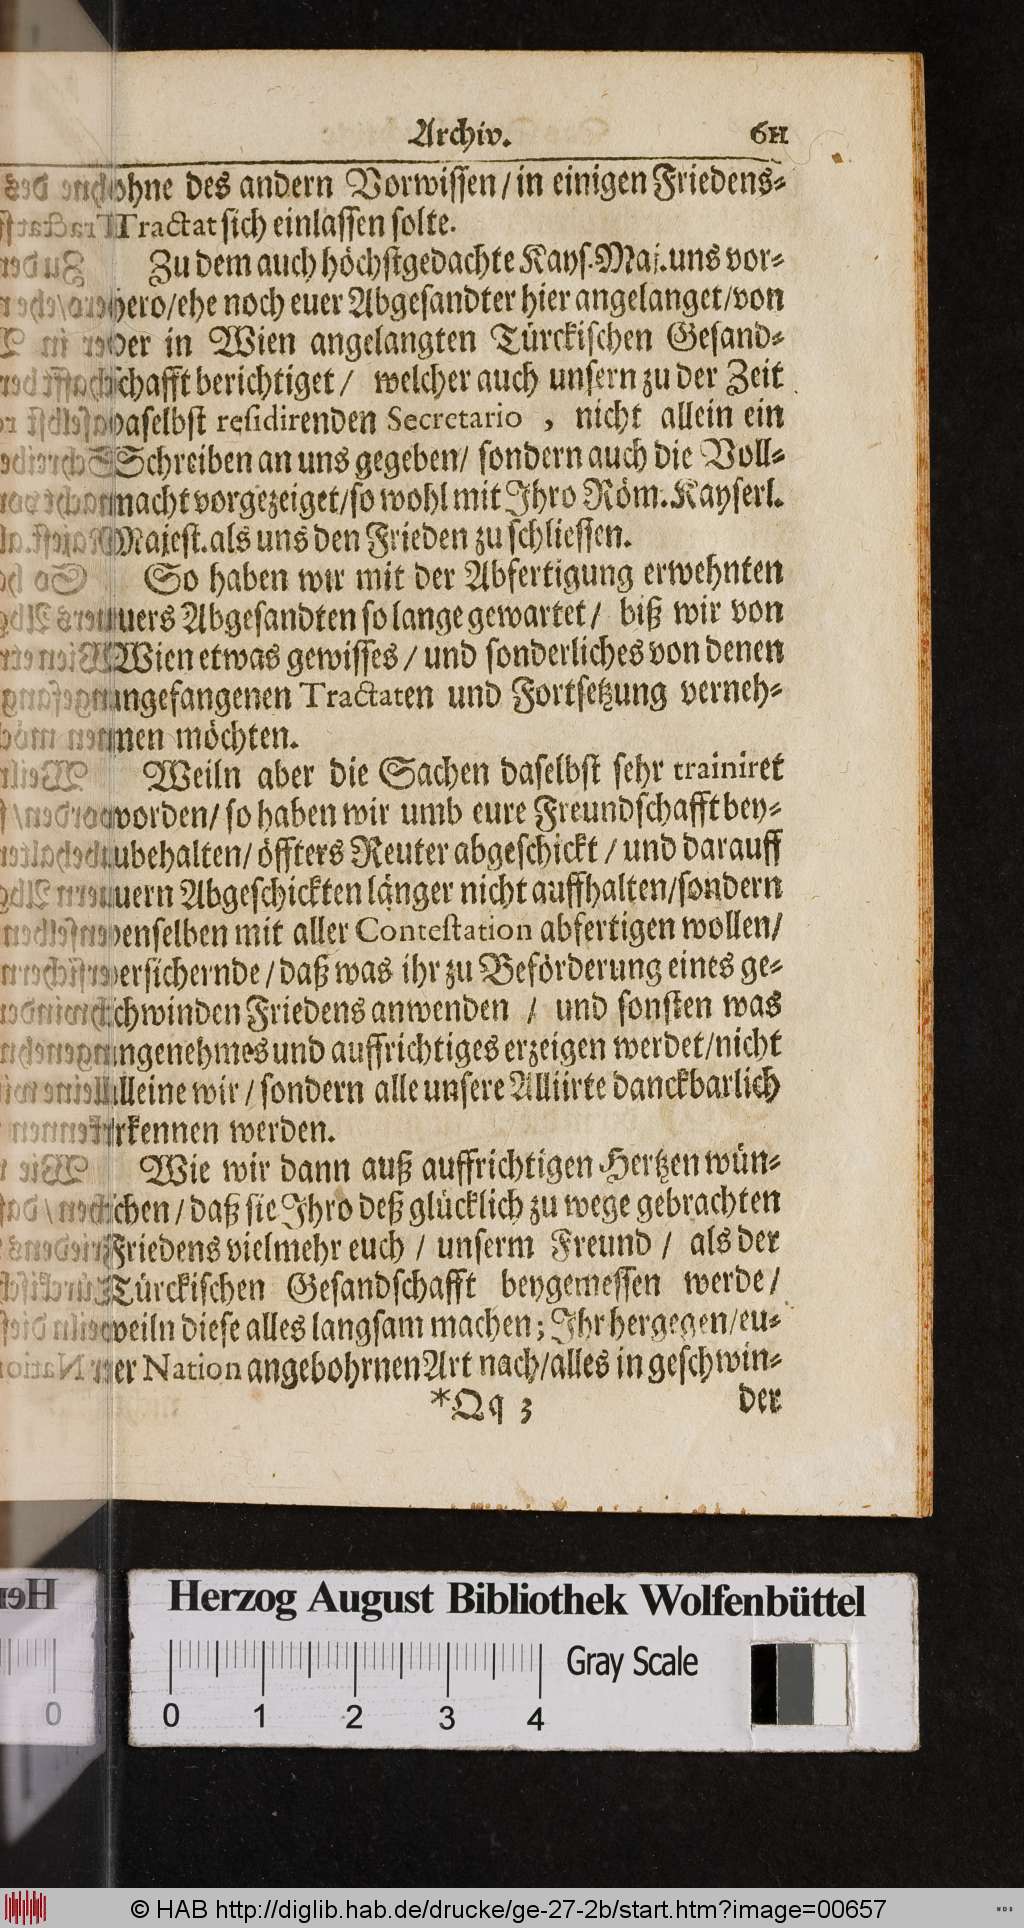 Archiv. 611
ohne des andern Vorwissen / in einigen Friedens-
Tractat sich einlassen solte.
Zu dem auch höchstgedachte Kays. Maj. uns vor-
hero / ehe noch euer Abgesandter hier angelanget / von
der in Wien angelangten Türckischen Gesand-
schafft berichtiget / welcher auch unsern zu der Zeit
daselbst residirenden Secretario , nicht allein ein
Schreiben an uns gegeben / sondern auch die Voll-
macht vorgezeiget / so wohl mit Ihro Röm. Kayserl.
Majest. als uns den Frieden zu schliessen.
So haben wir mit der Abfertigung erwehnten
euers Abgesandten so lange gewartet / biß wir von
Wien etwas gewisses / und sonderliches von denen
angefangenen Tractaten und Fortsetzung verneh-
men möchten.
Weiln aber die Sachen daselbst sehr trainiret
worden / so haben wir umb eure Freundschafft bey-
zubehalten / öffters Reuter abgeschickt / und darauff
euern Abgeschickten länger nicht auffhalten / sondern
denselben mit aller Contestation abfertigen wollen /
versichernde / daß was ihr zu Beförderung eines ge-
schwinden Friedens anwenden / und sonsten was
angenehmes und auffrichtiges erzeigen werdet / nicht
alleine wir / sondern alle unsere Alliirte danckbarlich
erkennen werden.
Wie wir dann auß auffrichtigen Hertzen wün-
schen / daß sie Ihro deß glücklich zu wege gebrachten
Friedens vielmehr euch / unserm Freund / als der
Türckischen Gesandschafft beygemessen werde /
weiln diese alles langsam machen ; Ihr hergegen / eu-
rer Nation angebohrnen Art nach / alles in geschwin-
*Qq 3 der
Herzog August Bibliothek Wolfenbüttel
Gray Scale
0 1 2 3 4
© HAB http://diglib.hab.de/drucke/ge-27-2b/start.htm?image=00657